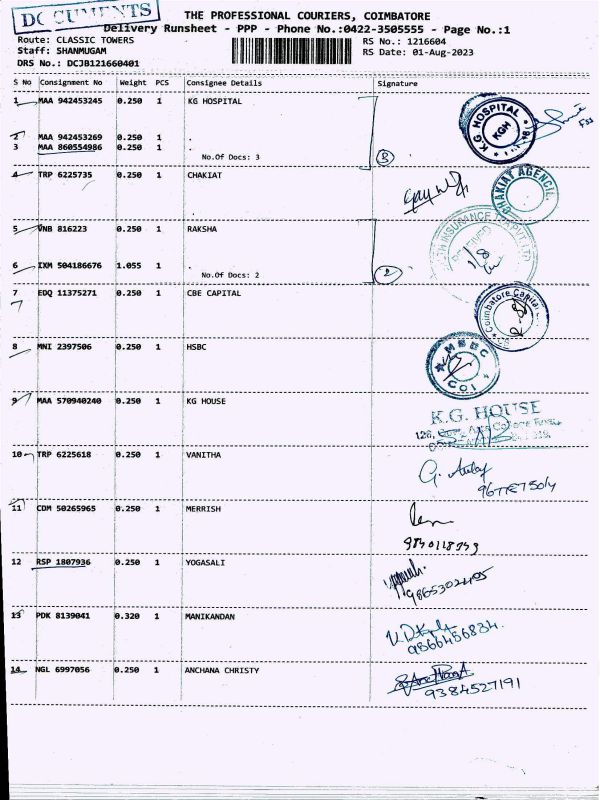 DOCUMENTS
THE PROFESSIONAL COURIERS, COIMBATORE
Delivery Runsheet - PPP - Phone No.:0422-3505555 - Page No.:1
Route: CLASSIC TOWERS
RS No.: 1216604
Staff: SHANMUGAM
RS Date: 01-Aug-2023
DRS No.: DCJB121660401
S No Consignment No Weight PCS Consignee Details Signature
1 MAA 942453245 0.250 1 KG HOSPITAL
K G HOSPITAL
KGH
2 MAA 942453269 0.250 1 .
3 MAA 860554986 0.250 1 .
No.Of Docs: 3
3
4 TRP 6225735 0.250 1 CHAKIAT
5 VNB 816223 0.250 1 RAKSHA
6 IXM 504186676 1.055 1 .
No.Of Docs: 2
2
7 EDQ 11375271 0.250 1 CBE CAPITAL
Coimbatore Capital
8 MNI 2397506 0.250 1 HSBC
9 MAA 570940240 0.250 1 KG HOUSE
K.G. HOUSE
10 TRP 6225618 0.250 1 VANITHA
11 CDM 50265965 0.250 1 MERRISH
12 RSP 1807936 0.250 1 YOGASALI
9865302405
13 PDK 8139041 0.320 1 MANIKANDAN
9566456834.
14 NGL 6997056 0.250 1 ANCHANA CHRISTY
9384527191